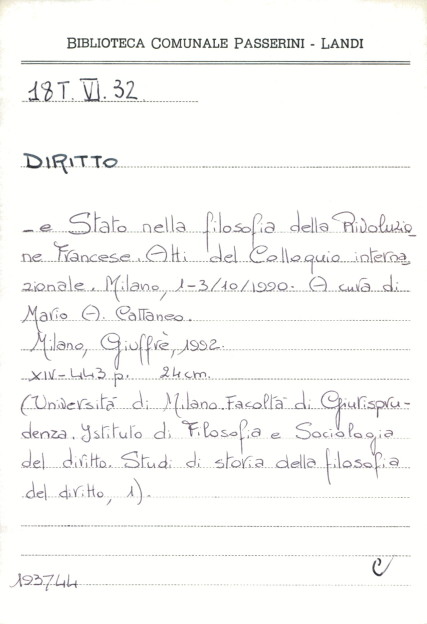 BIBLIOTECA COMUNALE PASSERINI - LANDI
18 T. VI. 32.
DIRITTO
- e Stato nella filosofia della Rivoluzio
ne Francese. Atti del Colloquio interna
zionale. Milano, 1-3/10/1990. A cura di
Mario A. Cattaneo.
Milano, Giuffrè, 1992.
XIV-443 p. 24 cm.
(Università di Milano. Facoltà di Giurispru-
denza. Istituto di Filosofia e Sociologia
del diritto. Studi di storia della filosofia
del diritto, 1).
193744